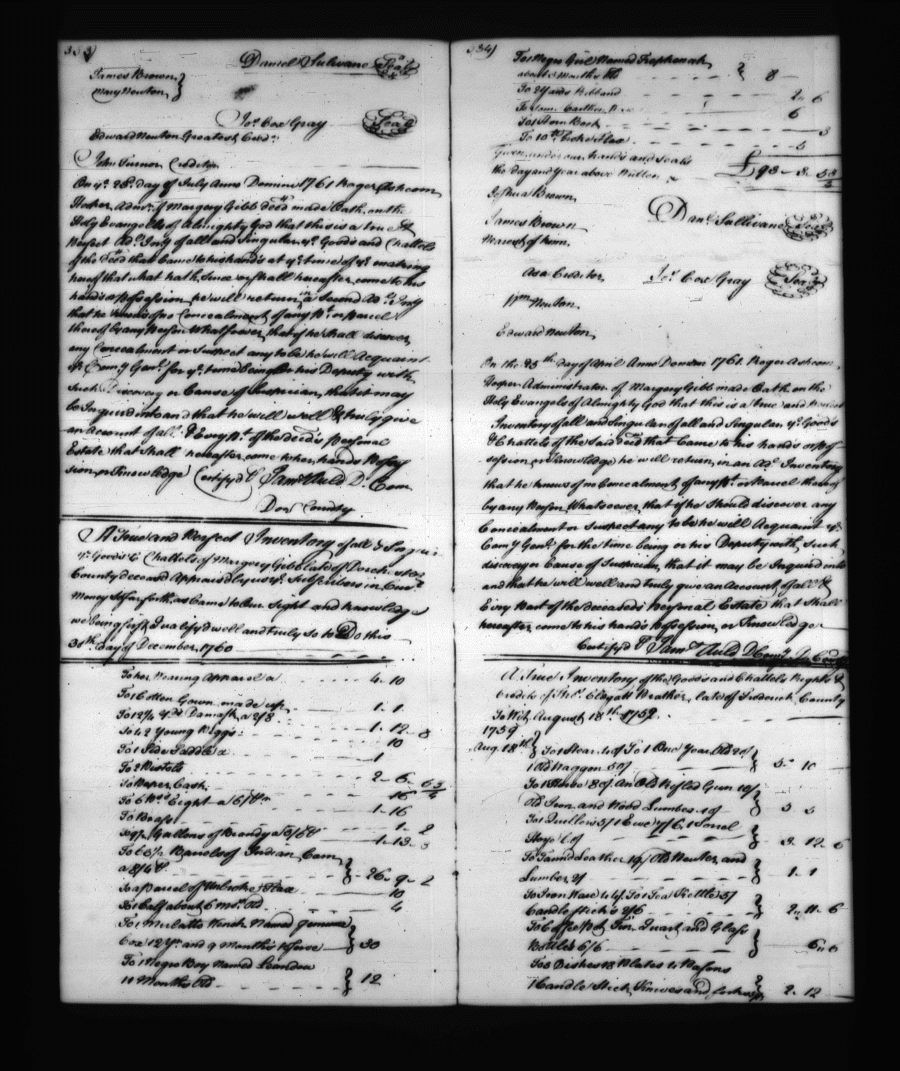 333
Daniel Sulivane Seal
James Brown
Mary Newton
Jos. Cox Gray Seal
Edward Newton Greatest Cred.
John Turner Creditor
On ye. 28th. day of July Anno Domini 1761 Roger Ashcom
Hooper Admr. of Margery Gibb deced made Oath on the
Holy Evangells of Almighty God that this is a true &
Perfect Ad. Invy of all and Singular ye. Goods and Chattels
of the Deced that Came to his hands at ye. time of ye. making
hereof that what hath since or shall hereafter come to his
hands or Possession he will return in a Second Ad. Invy
that he knows of no Concealment of any Pt. or Parcel
thereof by any Person Whatsoever, that if he shall discover
any Concealment or Suspect any to be he will Acquaint
ye Comy. Genl. for ye. time being or his Deputy with
Such Discovery or Cause of Suspicion, that it may
be Inquired into and that he will well & truly give
an account of all & Every Pt. of the deced's Personal
Estate that shall hereafter come to her hands Posses
sion, or Knowledge Certifyd P Jams. Auld D. Com
Dor. County
A True and Perfect Inventory of all & Singular
ye. Goods & Chattels of Margery Gibb late of Dorchester
County deceased Appraised by us ye. Subscribers in Curt.
Money So far forth as Came to Our Sight and knowledge
we being first Qualifyd well and truly So to Do this
30th. Day of December 1760
To her Wearing Apparel a 4 - 10
To 1 Cotten Gown made up 1 - 1
To 12 1/2 yds Damask a 2/8 1 - 12 - 8
To 42 Young Piggs 10
To 1 Side Saddle a 1
To 2 Pistols
To Paper Cash 2 - 6 - 6 3/4
To 6 Wt. Eight a 6/8 16
To Beass 1 - 16
To Gallons of Brandy 1 - 2
1 - 13 - 3
To 63 1/2 Barels of Indian Corn
a 8/4 26 - 9 - 2
To a Parcel of Unbroke Flax 10
To 1 Calf about 6 mo. Old 4
To 1 Mulatto Wench Named Jemima
Cox 12 yrs. and 9 Months to Serve 30
To 1 Negro Boy Named London
10 Months Old 12
334
To 1 Negro Girl Named Trephenah
about 2 Months Old 8
To 2 Yards Ribband 2 - 6
To Some Earthen 6
To 1 Horn Book 3
To 10 lb. broke Flax 5
Given under our hands and Seals
the day and Year above Written £98 - 8 - 5 3/4
Joshua Brown
James Brown Danl. Sullivane Seal
Nearest of kin
as a Creditor Jos. Cox Gray Seal
Wm. Newton
Edward Newton
On the 25th day of April Anno Domini 1761 Roger Ashcom
Hooper Administrator of Margery Gibb made Oath on the
Holy Evangels of Almighty God that this is a true and Perfect
Inventory of all and Singular of all and Singular ye. Goods
& Chattels of the Said deced that Came to his hands or Pos
session or Knowledge he will return in an Ad. Inventory
that he knows of no Concealment of any Pt. or Parcel thereof
by any Person Whatsoever, that if he Should discover any
Concealment or Suspect any to be he will Acquaint ye
Comy Genl. for the time being or his Deputy with Such
discovery or Cause of Suspicion, that it may be Inquired into
and that he will well and truly give an Account of all &
Every Part of the deceaseds Personal Estate that Shall
hereafter come to his hands Possession, or Knowledge
Certifyd P Jams. Auld D Comy. Dr. County
A True Inventory of the Goods and Chattels Rights &
Credits of Clagett Prather, late of Frederick County
To Wit, August 18th. 1759
1759
Aug. 18th To 1 Steer 40/ To 1 One Year Old 20/
1 Old Waggon 50/ 5 - 10
To 1 Horse 80/ An Old Rifled Gun 10/
Old Iron and Wood Lumber 3 5
To 1 Do 1 Ewe 7/6, 1 Sorrel
Horse 3 - 12 - 6
To Tannd Leather 19/ Old Pewter and
Lumber 2/ 1 - 1
To Iron Ware To 1 Tea Kettle 5/
Candlesticks 2/6 2 - 11 - 6
To Coffee Pot, Tin Quart and Glass
Bottles 6/6 6 - 6
To 3 Dishes 18 Plates 4 Basons
1 Candle Stick Knives and forks 2 - 12